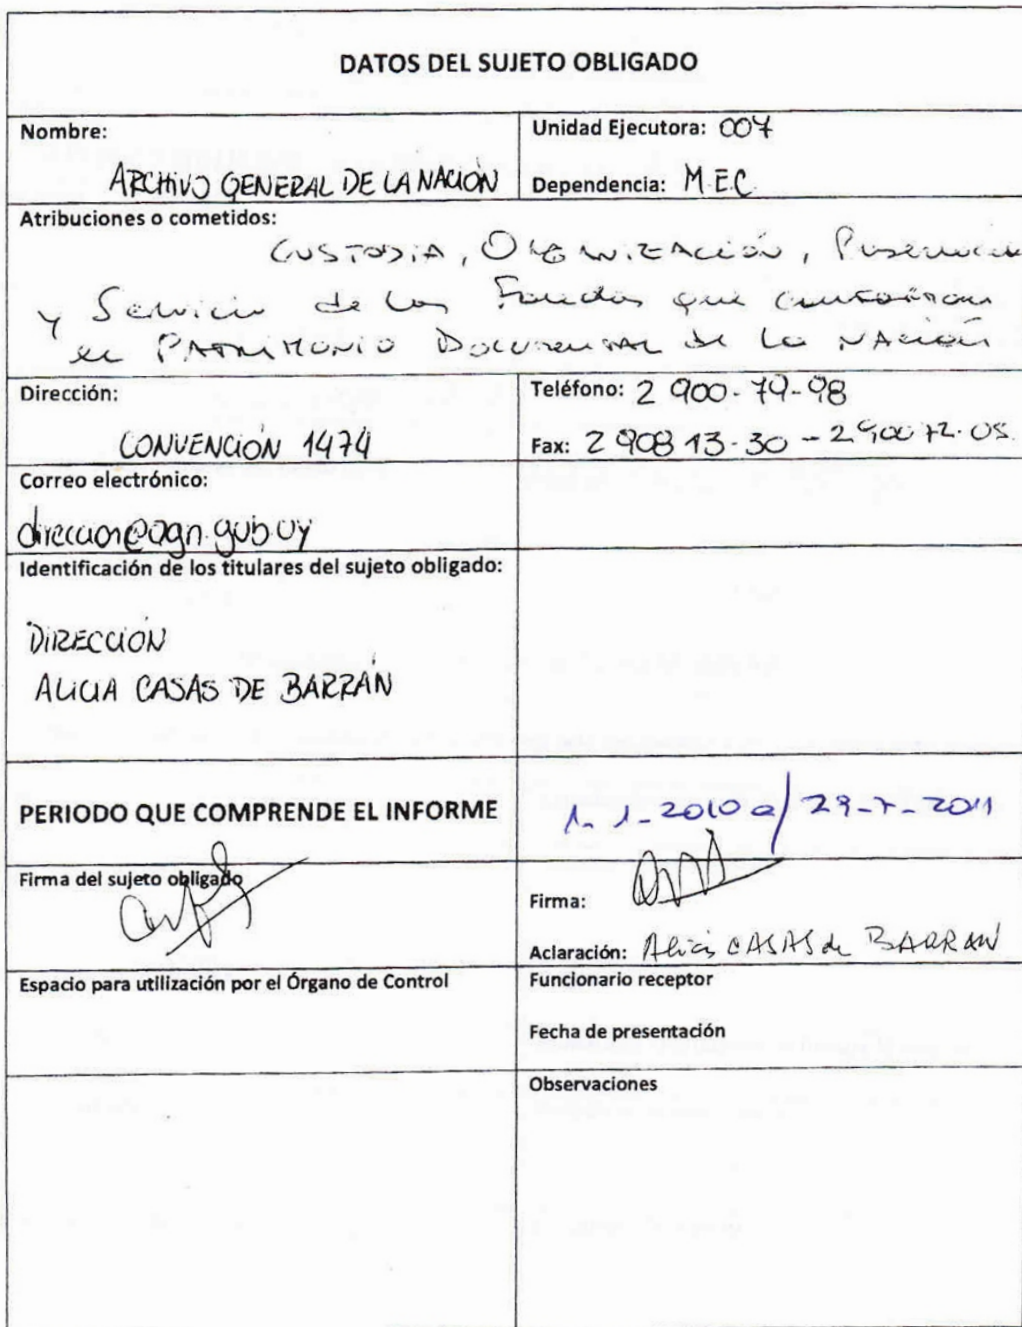 DATOS DEL SUJETO OBLIGADO
Nombre:
ARCHIVO GENERAL DE LA NACIÓN
Unidad Ejecutora: 007
Dependencia: M.E.C.
Atribuciones o cometidos:
CUSTODIA, ORGANIZACIÓN,
y Servicio de los Fondos que conforman
el PATRIMONIO DOCUMENTAL de la NACIÓN
Dirección:
CONVENCIÓN 1474
Teléfono: 2 900-74-98
Fax: 2 908 13-30 - 2 900 72-05
Correo electrónico:
direccion@agn.gub.uy
Identificación de los titulares del sujeto obligado:
DIRECCIÓN
ALICIA CASAS DE BARRÁN
PERIODO QUE COMPRENDE EL INFORME
1-1-2010 a / 29-7-2011
Firma del sujeto obligado
Firma:
Aclaración: Alicia CASAS de BARRAN
Espacio para utilización por el Órgano de Control
Funcionario receptor
Fecha de presentación
Observaciones